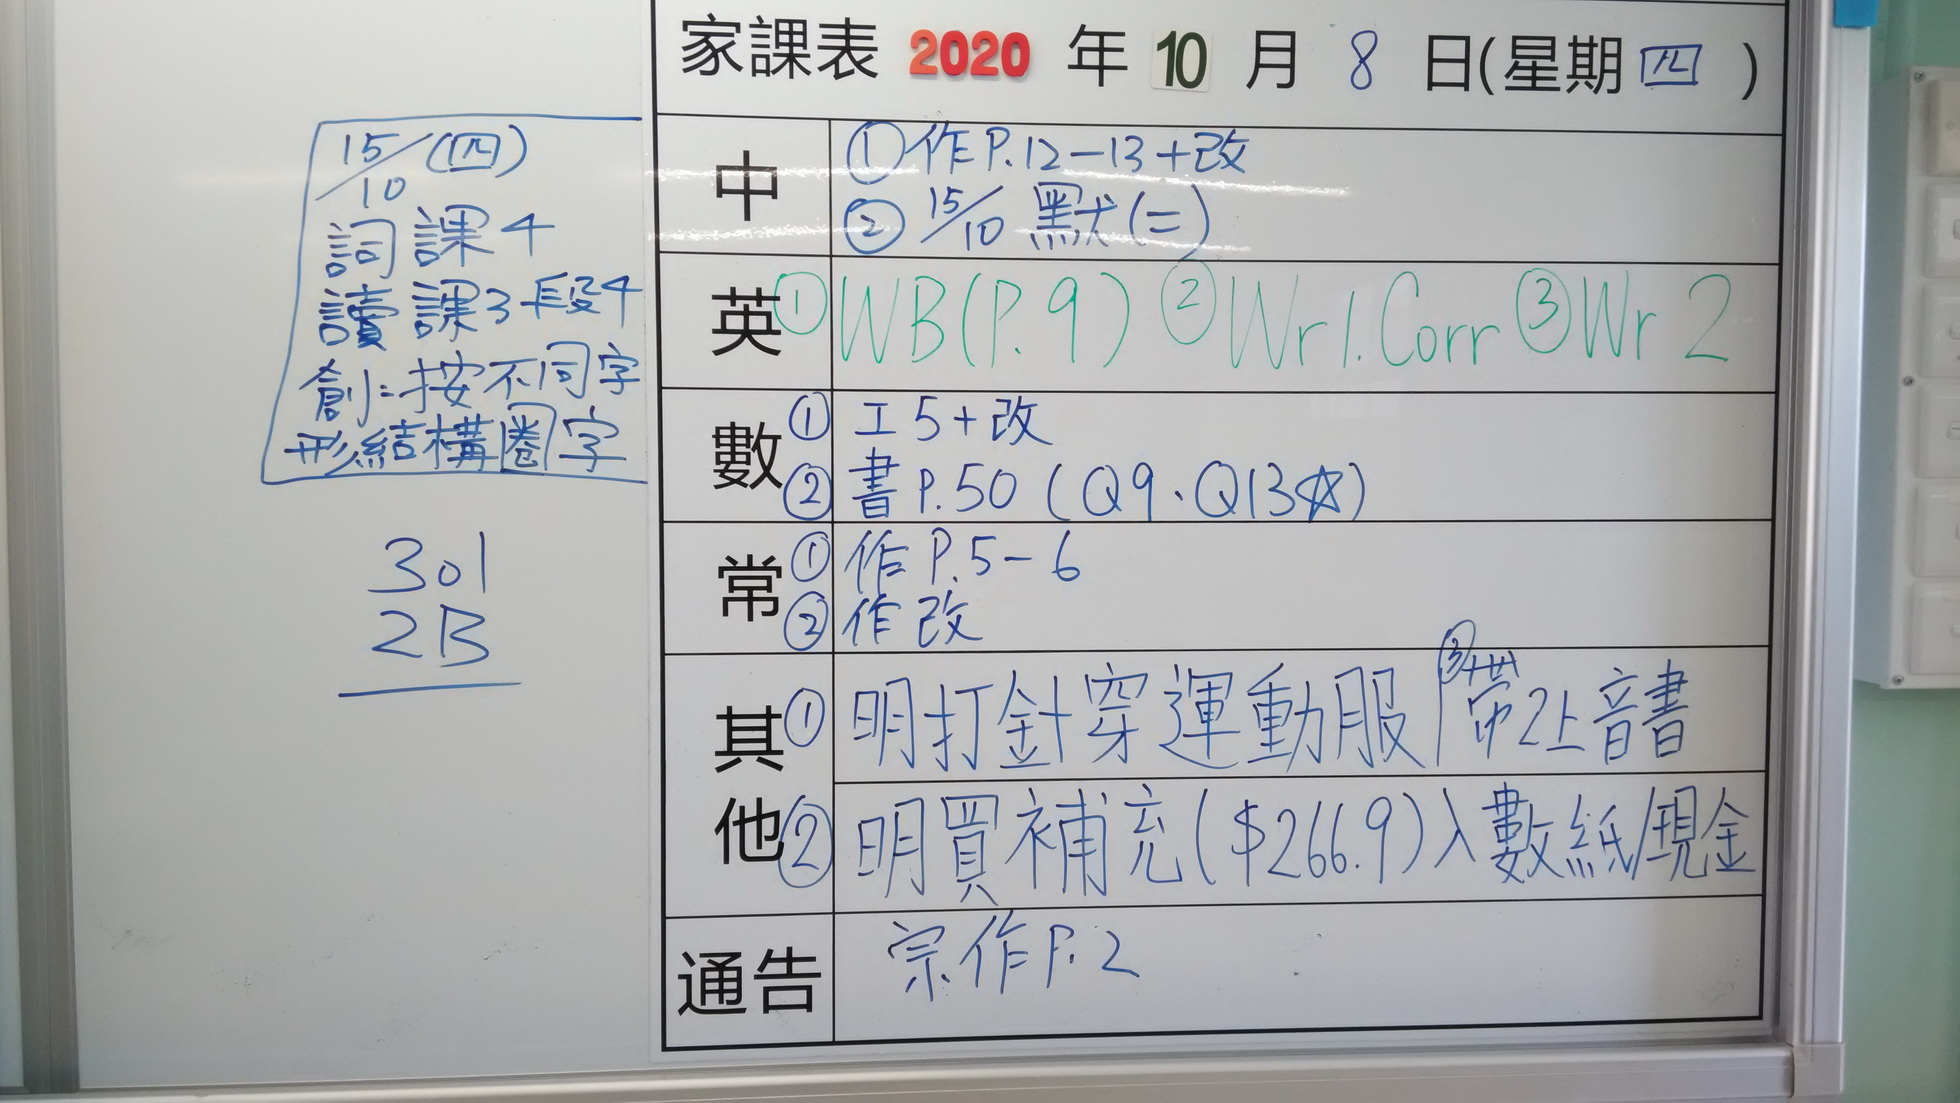 家課表 2020 年 10 月 8 日(星期四)
15/10 (四)
詞 課4
讀 課3 段4
創:按不同字
形結構圈字
301
2B
中
①作P.12-13+改
② 15/10 默(二)
英
①WB(P.9) ②Wr1.Corr ③Wr 2
數
① 工5+改
② 書P.50 (Q9、Q13☆)
常
① 作P.5-6
② 作改
其他
① 明打針穿運動服 / ③帶2上音書
② 明買補充($266.9)入數紙/現金
通告
宗.作P.2